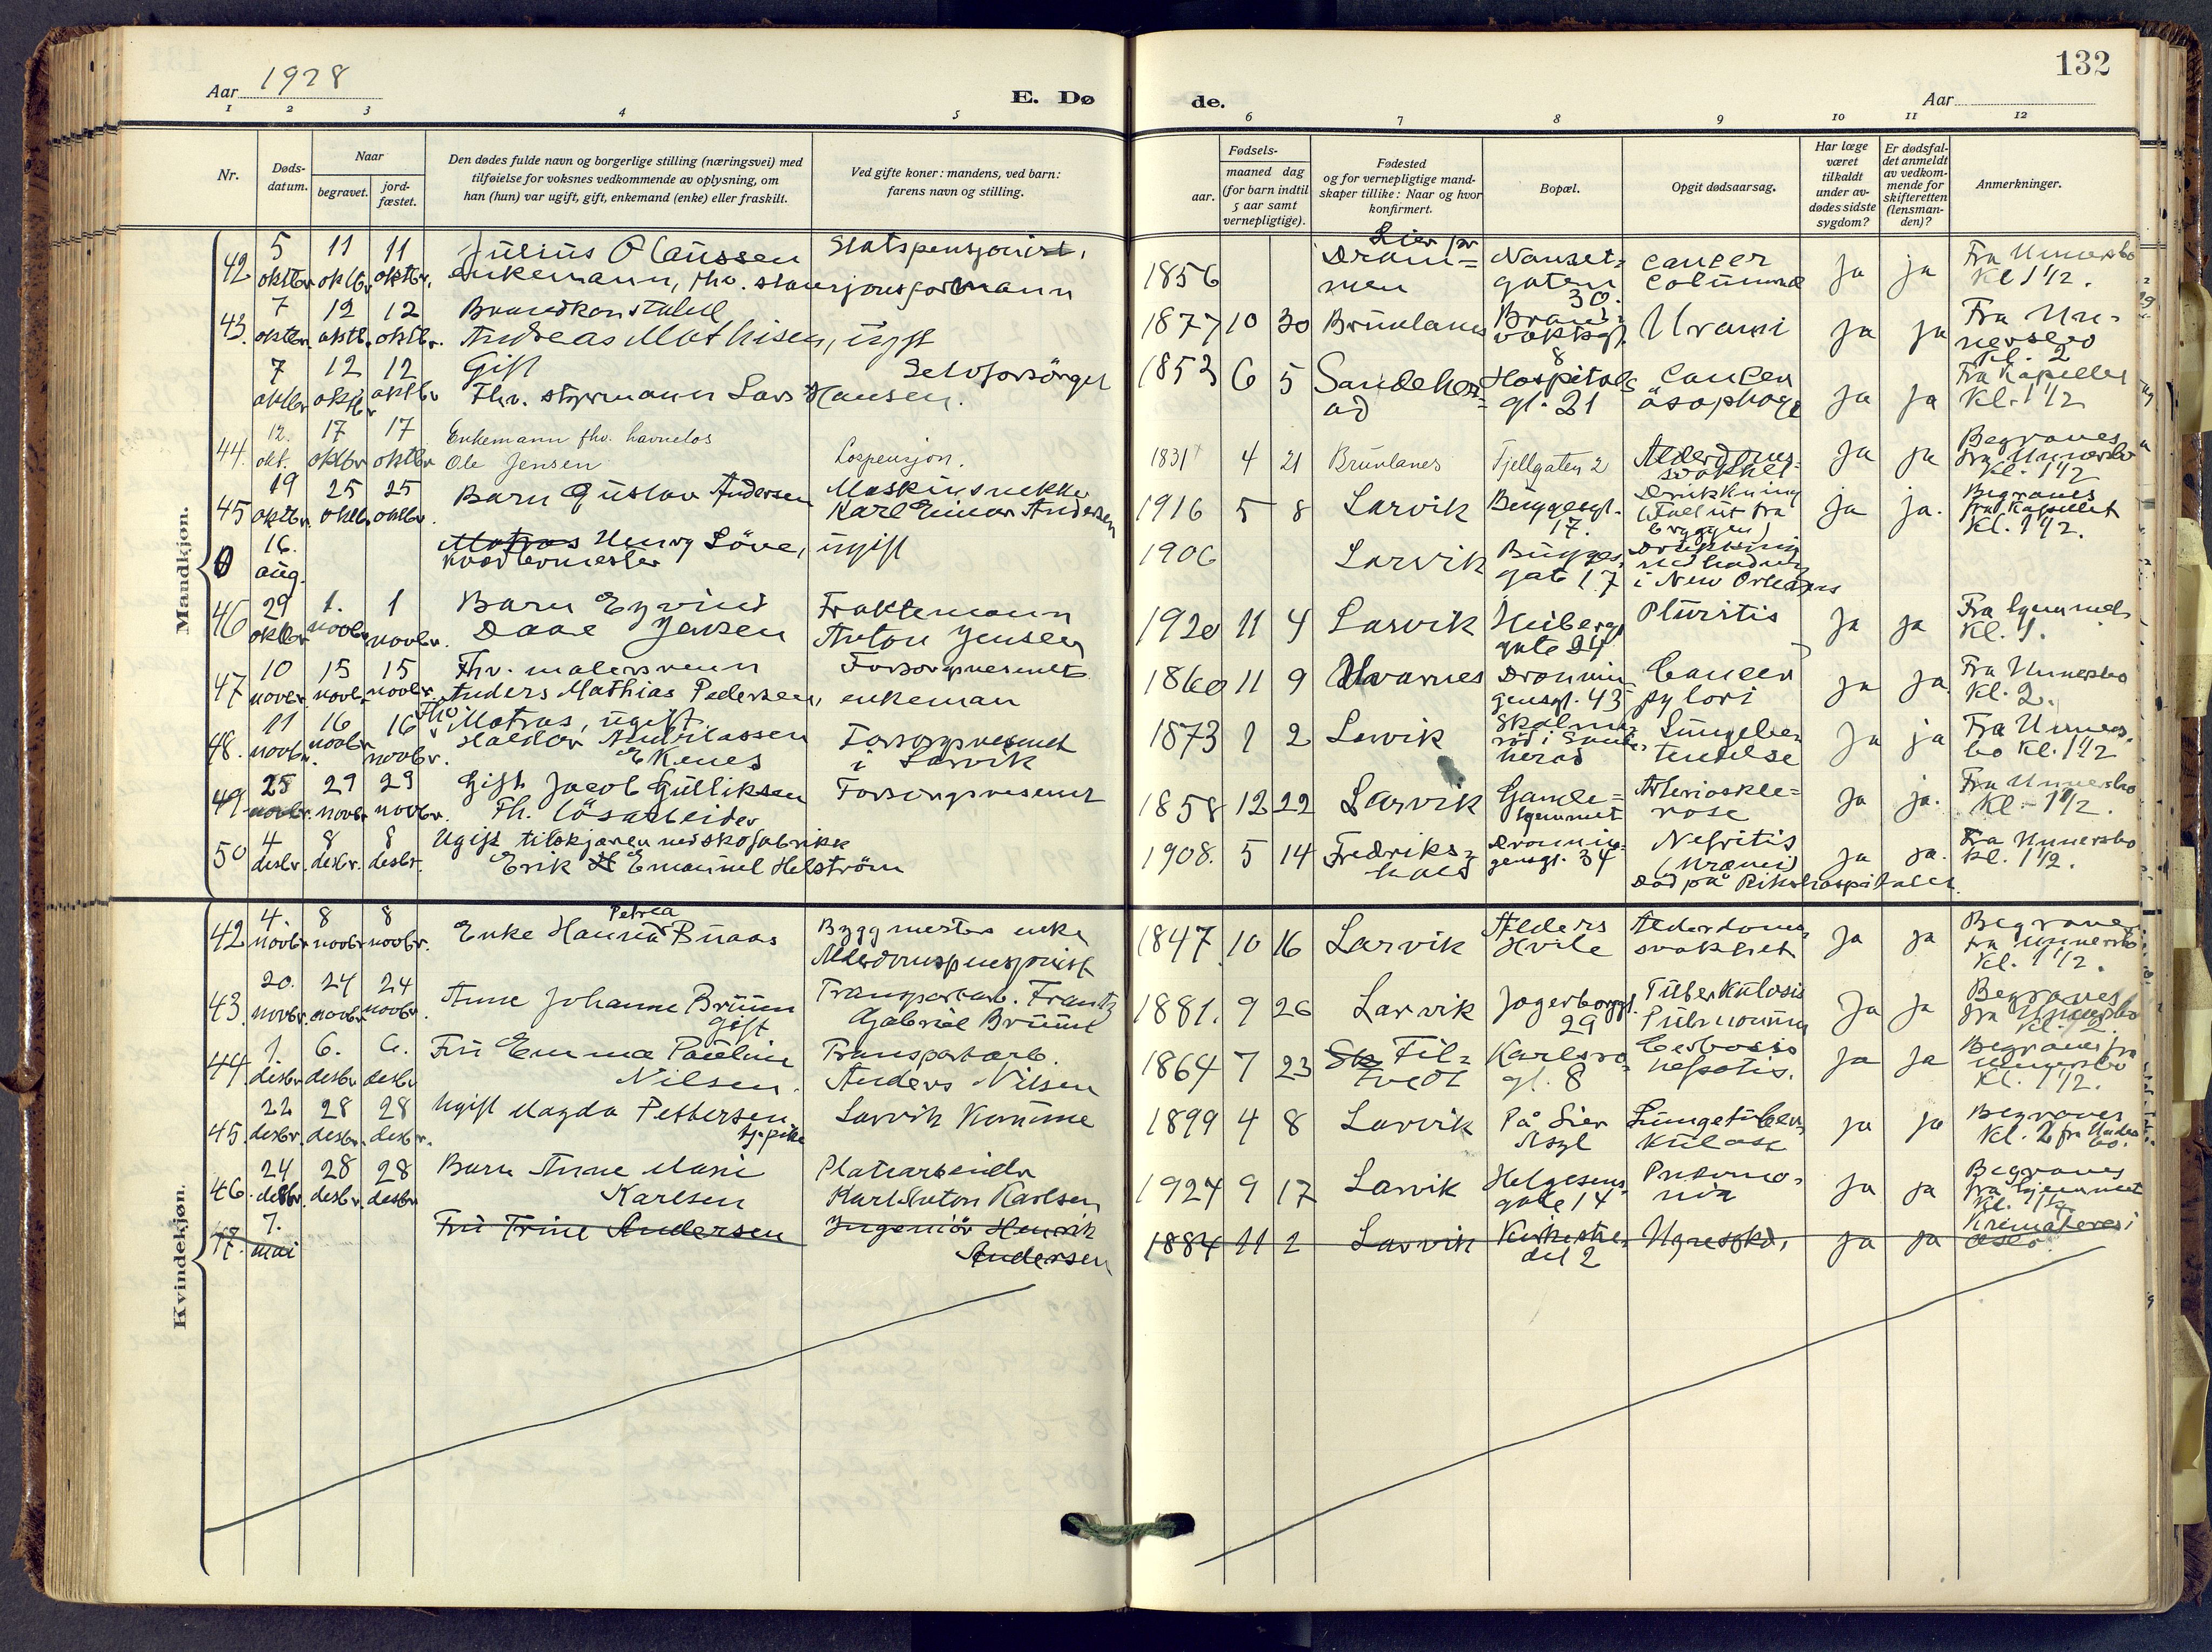 Aar 1928
E. Dø
de.
Aar
132
1 2 3 4 5 6 7 8 9 10 11 12
Nr.
Døds-
datum.
Naar
begravet.
jord-
fæstet.
Den dødes fulde navn og borgerlige stilling (næringsvei) med
tilføielse for voksnes vedkommende av oplysning, om
han (hun) var ugift, gift, enkemand (enke) eller fraskilt.
Ved gifte koner: mandens, ved barn:
farens navn og stilling.
Fødsels-
aar.
maaned dag
(for barn indtil
5 aar samt
vernepligtige).
Fødested
og for vernepligtige mand-
skaper tillike: Naar og hvor
konfirmert.
Bopæl.
Opgit dødsaarsag.
Har læge
været
tilkaldt
under av-
dødes sidste
sygdom?
Er dødsfal-
det anmeldt
av vedkom-
mende for
skifteretten
(lensman-
den)?
Anmerkninger.
Mandkjøn.
42 5 11 11 Julius Olaussen Statspensjonist.
oktbr. oktbr. oktbr. enkemann, fhv. stasjonsformann
1856 Lier pr Dram=
men Nanset=
gaten
30. cancer
ja ja Fra Unnersbo
Kl 1 1/2.
43. 7 12 12 Brandkonstabel
oktbr. oktb. oktbr. Andreas Mathisen, ugift
1877 10 30 Brunlanes Brand-
vaktsgt.
8 Urami ja ja Fra Un-
nersbo
kl. 2
7 12 12 Gift Selvforsörget
oktbr. oktbr. oktbr. Fhv. styrmann Lars Hansen.
1853 6 5 Sandeher=
ad Hospitals
gt. 21 Cancer
ösophagi ja ja Fra Kapellet
Kl. 1 1/2
44. 12. 17 17 Enkemann fhv. havnelos
okt. oktbr oktbr Ole Jensen Lospensjon.
1831 4 21 Brunlanes Fjellgaten 2 Alderdoms-
svakhet ja ja Begraves
fra Unnersbo
kl. 1 1/2
45 19 25 25 Barn Gustav Andersen Maskinsnekker
oktbr. oktb. oktbr. Karl Einar Andersen
1916 5 8 Larvik Buggegt.
17. Drukkning
(Falt ut fra
bryggen) ja ja. Begraves
fra Kapellet
Kl. 1 1/2.
0 16. Matros Henry Löve, ugift
aug. kvartermester
1906 Larvik Bugges
gate 17 Drukning
i New Orleans
46 29 1. 1 Barn Eyvind Fraktemann
oktbr. novbr. novbr. Daae Jensen Anton Jensen
1920 11 4 Larvik Heibergs
gate 24 Pluritis ja ja Fra hjemmet
Kl. 1.
47 10 15 15 Fhv. malersvenn Forsorgsvesenet
novbr. novb. novbr. Anders Mathias Pedersen, enkeman
1860 11 9 Hvarnes Dronnin-
gensgt. 43 Cancer
pylori ja ja Fra Unnersbo
Kl. 2.
48. 11 16 16 Fhv. Matros, ugift
novb. novbr. novbr. Forsorgsvesenet
Ekenes i Larvik
1873 1 2 Larvik
Lungebe-
tendelse ja ja Fra Unners-
bo kl. 1 1/2
49 25 29 29 Gift Jacob Gulliksen Forsorgsvesenet
novbr. novbr. novbr. Fh. lösarbeider
1858 12 22 Larvik Gamle=
hjemmet Arterioskle=
rose ja ja. Fra Unnersbo
Kl. 1 1/2.
50 4 8 8 Ugift tilskjærer ved skofabrikk
desbr. desbr. desbr. Erik H Emanuel Helström
1908. 5 14 Fredriks=
hald Dronnin-
gensgt. 34 Nefritis
(Urami)
Död på Rikshospitalet. ja ja. Fra Unnersbo
kl. 1 1/2.
Kvindekjøn.
42 4. 8 8 Enke Hanna Petrea Buaas Byggmesters enke
novbr. novbr. novbr. Alderdomspensjonist
1847 10 16 Larvik Alders
Hvile Alderdoms-
svakhet ja ja Begraves
fra Unnersbo
Kl. 1 1/2.
43. 20. 24 24 Anne Johanne Bruun Transportarb. Frantz
novbr. novbr. novbr. gift Gabriel Bruun
1881. 9 26 Larvik Jegerborggt.
29 Tuberkulosis
Pulmonum ja ja Begraves
fra Unnersbo
44 1. 6. 6. Fru Emma Pauline Transportarb.
desbr. desbr desbr Nilsen. Anders Nilsen
1864 7 23 Sk Fil=
tvedt Karlsro
gt. 8 Cerbosis
hepatis. ja ja Begraves fra
Unnersbo
Kl. 1 1/2.
45. 22 28 28 Ugift Magda Pettersen Larvik Komune
desbr. desbr. desbr. tj.pike
1899 4 8 Larvik På Lier
Asyl Lungetuber-
kulose ja ja Begraves
Kl. 2 fra Unders
bo.
46. 24 28 28 Barn Anne Marie Platearbeider
desbr. desbr. desbr. Karlsen Karl Anton Karlsen
1924 9 17 Larvik Helgesens
gate 14 Pneumo-
nia ja ja Begraves
fra hjemmet
47. 7. Fru Trine Andersen Ingeniör Henrik
mai Andersen
1884 11 2 Larvik Kirkestre-
det 2 ja ja Krimateres i
Oslo.